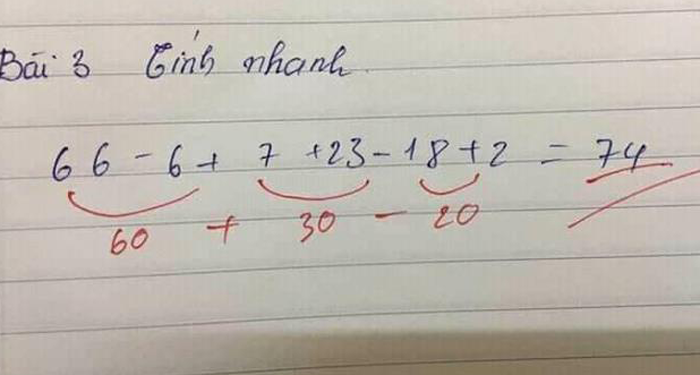 Bài 3 Tính nhanh
66 - 6 + 7 + 23 - 18 + 2 = 74
60 + 30 - 20